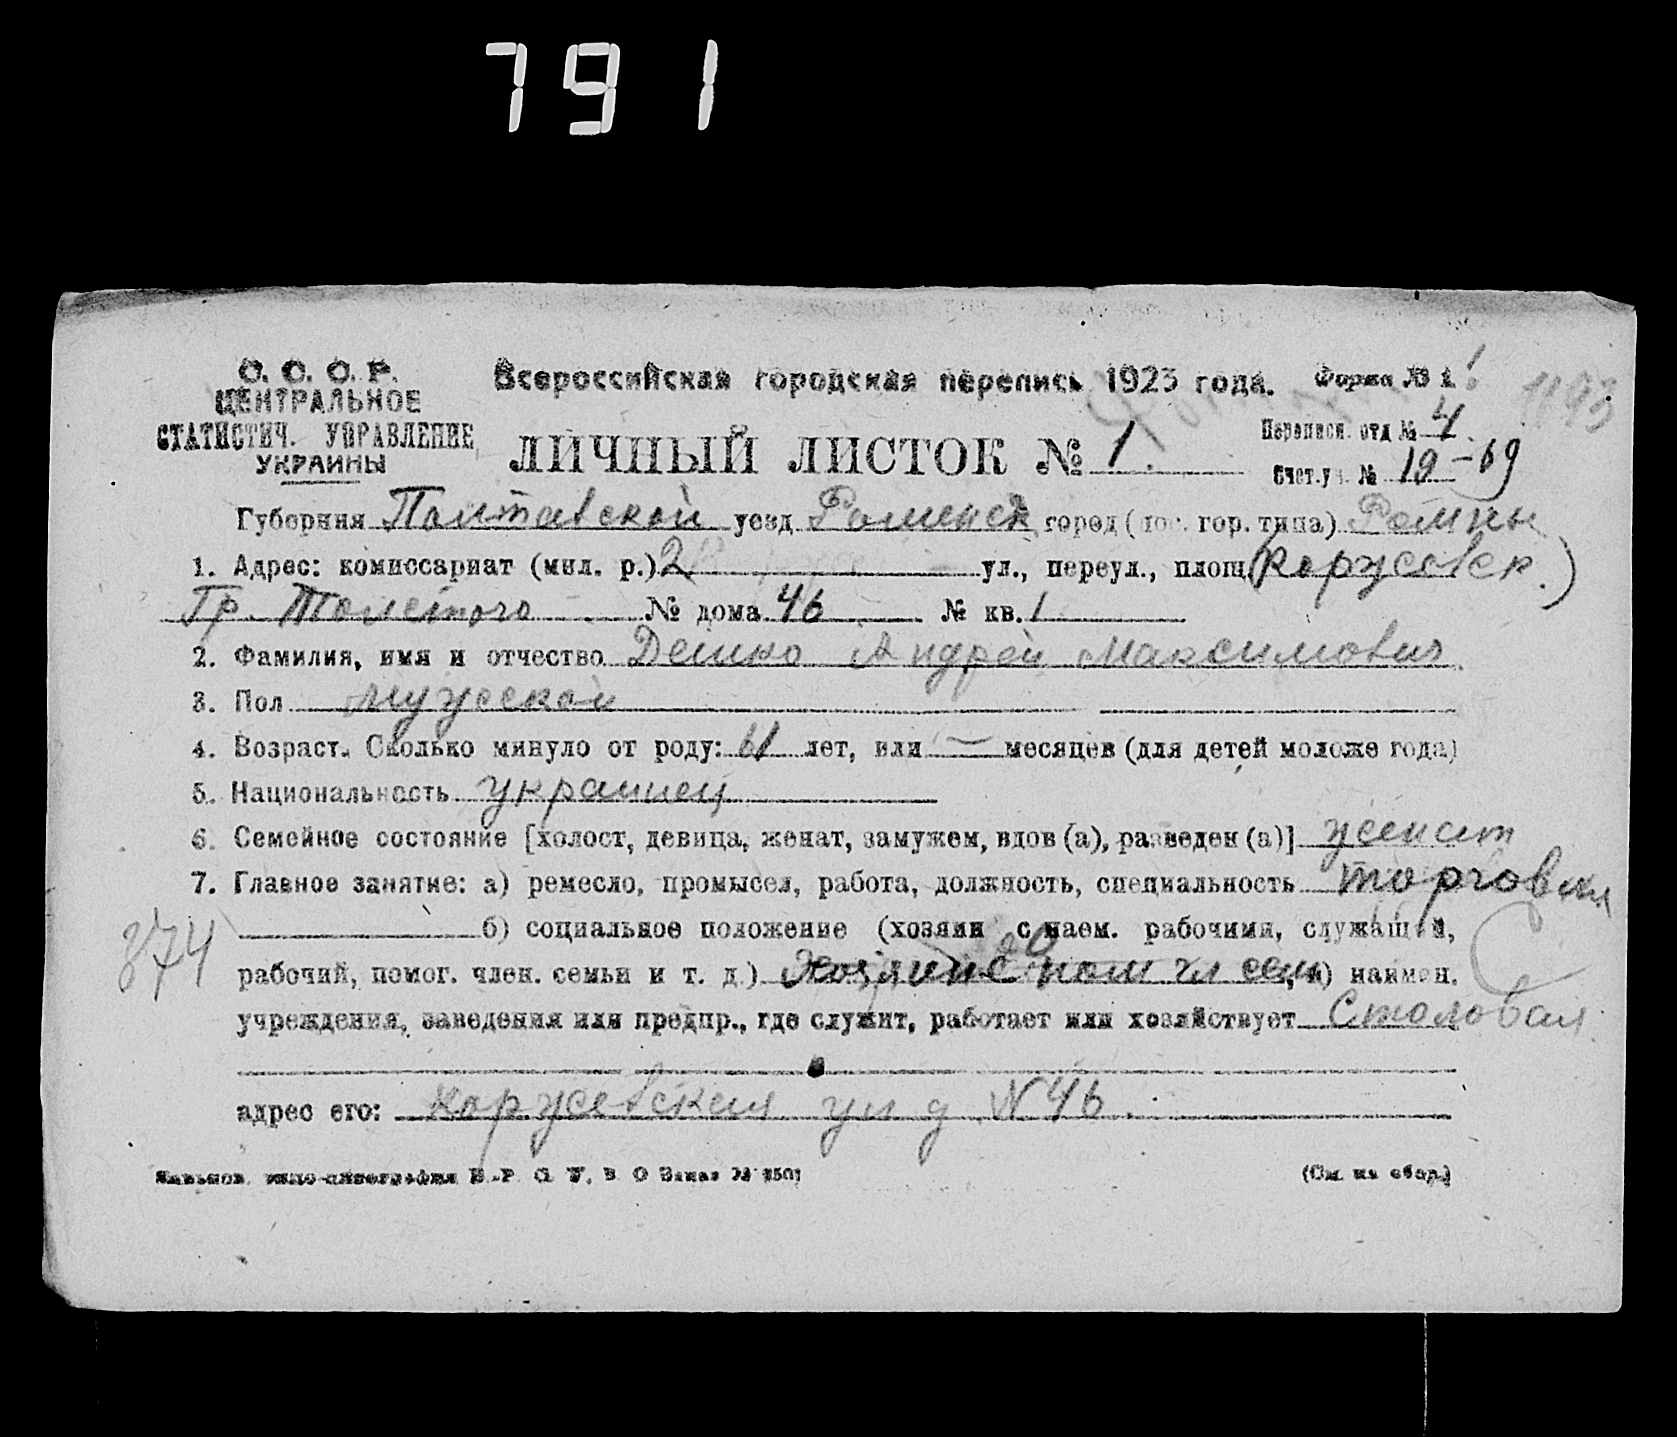 791
С. С. С. Р.
ЦЕНТРАЛЬНОЕ
СТАТИСТИЧ. УПРАВЛЕНИЕ
УКРАИНЫ
Всероссийская городская перепись 1923 года. Форма № 1
Переписн. отд № 4
ЛИЧНЫЙ ЛИСТОК № 1.
Счет.уч. № 19-69
Губерния Полтавской уезд Роменск город (пос. гор. типа) Ромны
1. Адрес: комиссариат (мил. р.) 2 ул., переул., площ. (Коржевск.)
Гр. Толстого № дома 46 № кв. 1
2. Фамилия, имя и отчество Дейко Андрей Максимович
3. Пол мужской
4. Возраст. Сколько минуло от роду: 61 лет, или — месяцев (для детей моложе года)
5. Национальность украинец
6. Семейное состояние [холост, девица, женат, замужем, вдов (а), разведен (а)] женат
7. Главное занятие: а) ремесло, промысел, работа, должность, специальность торговля
б) социальное положение (хозяин с наем. рабочими, служащий,
374
рабочий, помог. член. семьи и т. д.) Хозяин с пом чл семьи) наимен.
учреждения, заведения или предпр., где служит, работает или хозяйствует Столовая
адрес его: Коржевская ул д N 46.
(См. на обор.)